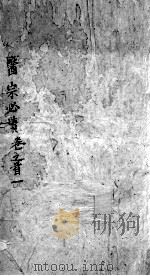 醫宗必讀卷首一
研狗
mtoou.info